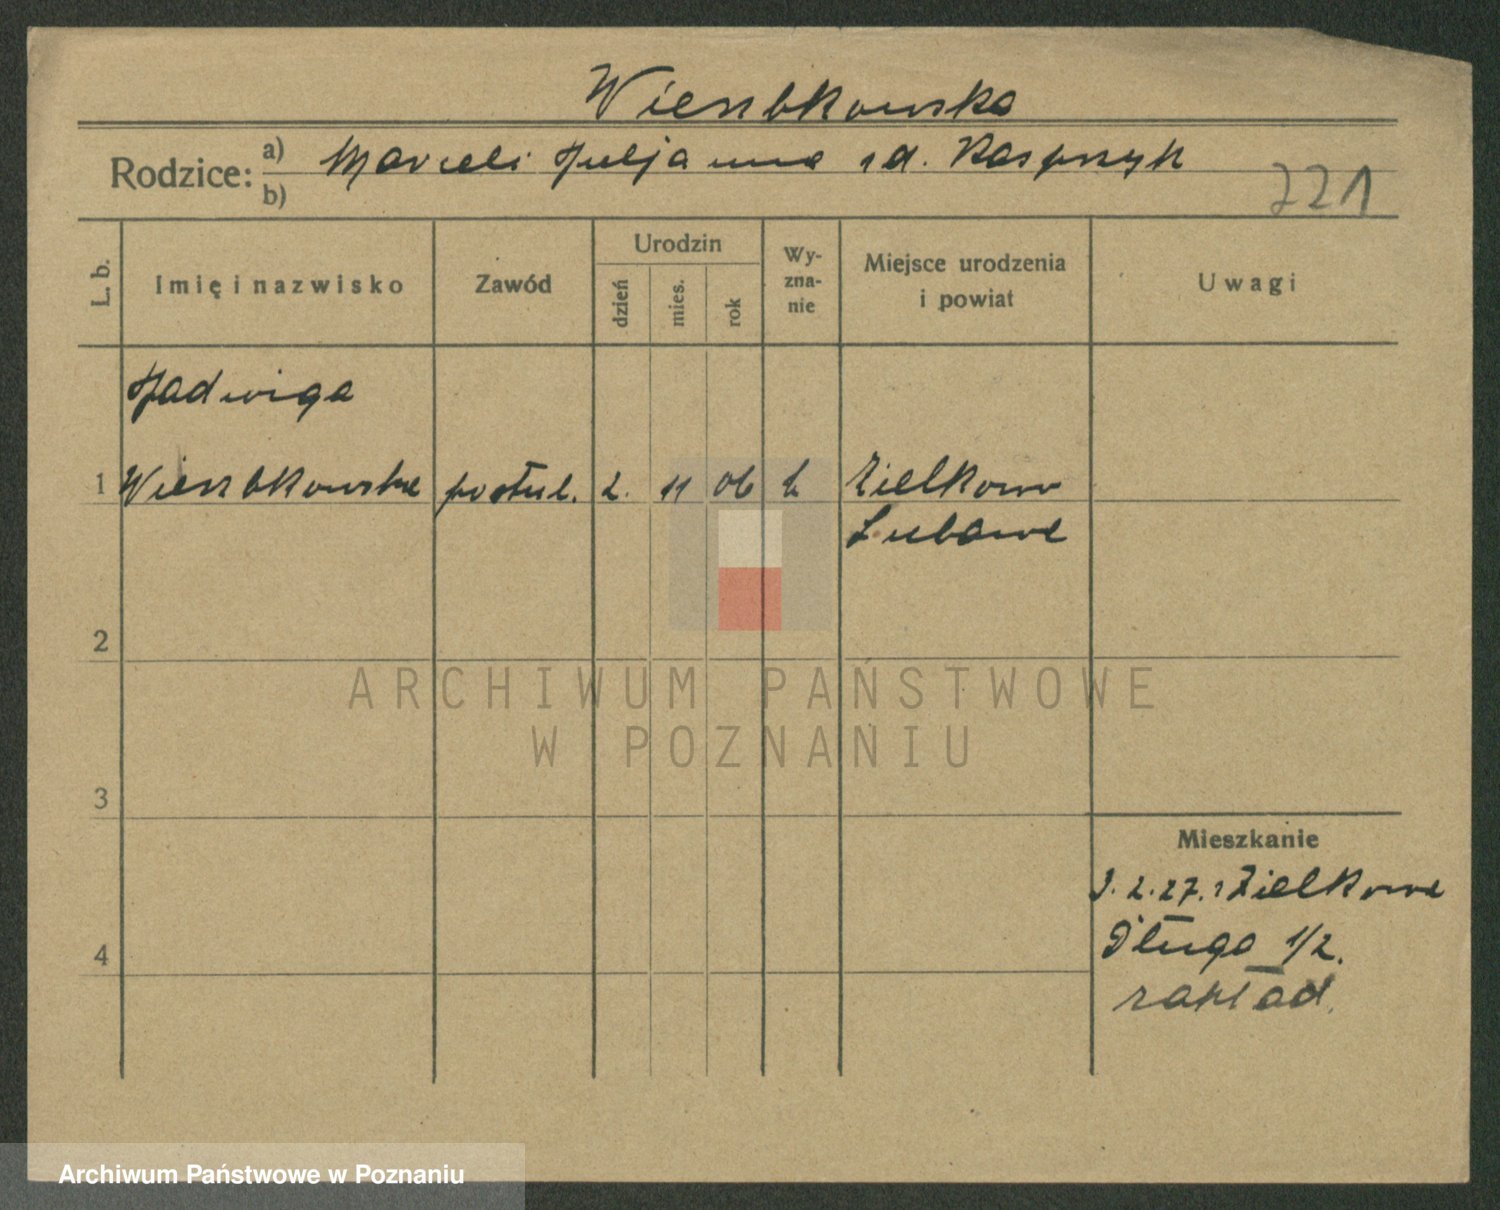 Wierzbkowska
Rodzice:
a) Marceli Juljanna z d. Kasprzyk
b)
221
L. b.
Imię i nazwisko
Zawód
Urodzin
dzień
mies.
rok
Wy-
zna-
nie
Miejsce urodzenia
i powiat
Uwagi
Jadwiga
1 Wierzbkowska postul. 2. 11 06 k Zielkowo
Lubawa
2
ARCHIWUM PAŃSTWOWE
W POZNANIU
3
Mieszkanie
3.2.27. z Zielkowa
Długa 1/2.
4
zakład.
Archiwum Państwowe w Poznaniu